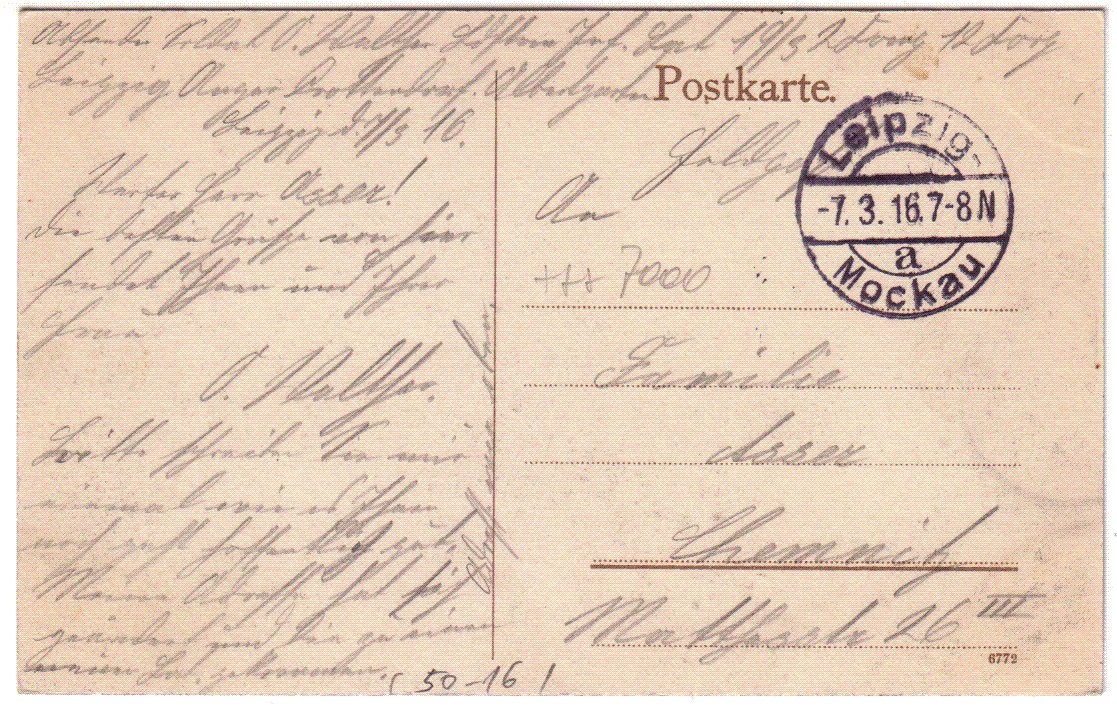 Absender Soldat O. Walther Inf. Bat 19/3 2 Komp 12 Korp
Leipzig Anger Crottendorf. Albertgarten
Leipzig d. 7/3 16.
Werter Herr Asser!
Die besten Grüße von hier
sendet Ihnen und Ihrer
Frau
O. Walther.
Bitte schreiben Sie mir
einmal wie es Ihnen
noch geht hoffentlich gut.
Meine Adresse hat sich
geändert und bin zu einem
neuen Bat. gekommen.
Postkarte.
Feldpost
An
+++ 7000
Familie
Asser
Chemnitz
26 III
6772
Leipzig-
-7.3.16.7-8N
a
Mockau
(50-16)